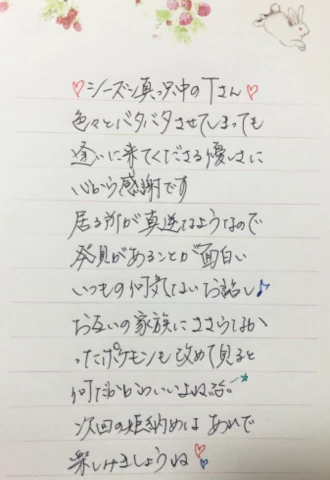 ♡シーズン真っ只中のTさん♡
色々とバタバタさせてしまっても
逢いに来てくださる優しさに
心から感謝です
居る所が真逆なようなので
発見があることが面白い
いつもの何気ないお話し♪
お互いの家族にささらなか
ったポケモンも改めて見ると
何だかかわいいよね話☆
次回の姫納めは あれで
楽しみましょうね♡